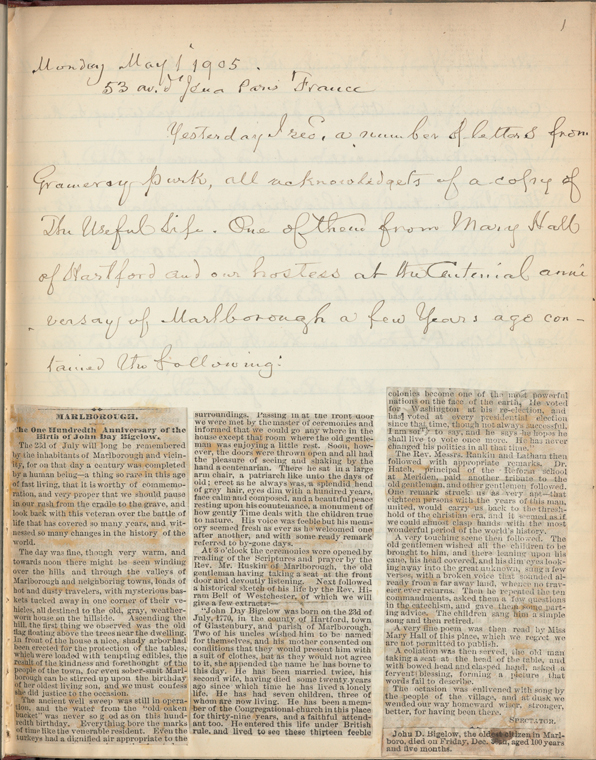 1
Monday May 1st 1905.
53 av. d'Jena Paris France
Yesterday I rec. a number of letters from
Gramercy Park, all acknowledgets of a copy of
The Useful Life. One of them from Mary Hall
of Hartford and our hostess at the Centenial anni
versay of Marlborough a few Years ago con-
tained the following:
MARLBOROUGH.
The One Hundredth Anniversary of the
Birth of John Day Bigelow.
The 23d of July will long be remembered
by the inhabitants of Marlborough and vicin-
ity, for on that day a century was completed
by a human being—a thing so rare in this age
of fast living, that it is worthy of commemo-
ration, and very proper that we should pause
in our rash from the cradle to the grave, and
look back with this veteran over the battle of
life that has covered so many years, and wit-
nessed so many changes in the history of the
world.
The day was fine, though very warm, and
towards noon there might be seen winding
over the hills and through the valleys of
Marlborough and neighboring towns, loads of
hot and dusty travelers, with mysterious bas-
kets tacked away in one corner of their ve-
hicles, all destined to the old, gray, weather-
worn house on the hillside. Ascending the
hill, the first thing we observed was the old
flag floating above the trees near the dwelling.
In front of the house a nice, shady arbor had
been erected for the protection of the tables,
which were loaded with tempting edibles, the
result of the kindness and forethought of the
people of the town, for even sober-suit Marl-
borough can be stirred up upon the birthday
of her oldest living son, and we must confess
she did justice to the occasion.
The ancient well sweep was still in opera-
tion, and the water from the "old oaken
bucket" was never so good as on this hund-
redth birthday. Everything bore the marks
of time like the venerable resident. Even the
turkeys had a dignified air appropriate to the
surroundings. Passing in at the front door
we were met by the master of ceremonies and
informed that we could go any where in the
house except that room where the old gentle-
man was enjoying a little rest. Soon, how-
ever, the doors were thrown open and all had
the pleasure of seeing and shaking by the
hand a centenarian. There he sat in a large
arm chair, a patriarch like unto the days of
old; erect as he always was, a splendid head
of grey hair, eyes dim with a hundred years,
face calm and composed, and a beautiful peace
resting upon his countenance, a monument of
how gently Time deals with the children true
to nature. His voice was feeble but his mem-
ory seemed fresh as ever as he welcomed one
after another, and with some ready remark
referred to by-gone days.
At 3 o'clock the ceremonies were opened by
reading of the Scriptures and prayer by the
Rev. Mr. Ruskin of Marlborough, the old
gentleman having taking a seat at the front
door and devoutly listening. Next followed
a historical sketch of his life by the Rev. Hi-
ram Bell of Westchester, of which we will
give a few extracts:—
"John Day Bigelow was born on the 23d of
July, 1770, in the county of Hartford, town
of Glastenbury, and parish of Marlborough.
Two of his uncles wished him to be named
for themselves, and his mother consented on
conditions that they would present him with
a suit of clothes, but as they would not agree
to it, she appended the name he has borne to
this day. He has been married twice, his
second wife, having died some twenty years
ago since which time he has lived a lonely
life. He has had seven children, three of
whom are now living. He has been a mem-
ber of the Congregational church in this place
for thirty-nine years, and a faithful attend-
ant too. He entered this life under British
rule, and lived to see these thirteen feeble
colonies become one of the most powerful
nations on the face of the earth. He voted
for Washington at his re-election, and
has voted at every presidential election
since that time, though not always successful,
I am sorry to say, and he says he hopes he
shall live to vote once more. He has never
changed his politics in all that time."
The Rev. Messrs. Rankin and Latham then
followed with appropriate remarks. Dr.
Hatch, Principal of the Reform School
at Meriden, paid another tribute to the
old gentleman, and other gentlemen followed.
One remark struck us as very apt—that
eighteen persons with the years of this man,
united, would carry us back to the thresh-
hold of the Christian era, and it seemed as if
we could almost clasp hands with the most
wonderful period of the world's history.
A very touching scene then followed. The
old gentleman wished all the children to be
brought to him, and there leaning upon his
cane, his head covered, and his dim eyes look-
ing away into the great unknown, sang a few
verses, with a broken voice that sounded al-
ready from a far away land, whence no trav-
eler ever returns. Then he repeated the ten
commandments, asked them a few questions
in the catechism, and gave them some part-
ing advice. The children sang him a simple
song and then retired.
A very fine poem was then read by Miss
Mary Hall of this place, which we regret we
are not permitted to publish.
A collation was then served, the old man
taking a seat at the head of the table, and
with bowed head and clasped hand, asked a
fervent blessing, forming a picture that
words fail to describe.
The occasion was enlivened with song by
the people of the village, and at dusk we
wended our way homeward wiser, stronger,
better, for having been there.
SPECTATOR.
John D. Bigelow, the oldest citizen in Marl-
boro, died on Friday, Dec. aged 100 years
and five months.